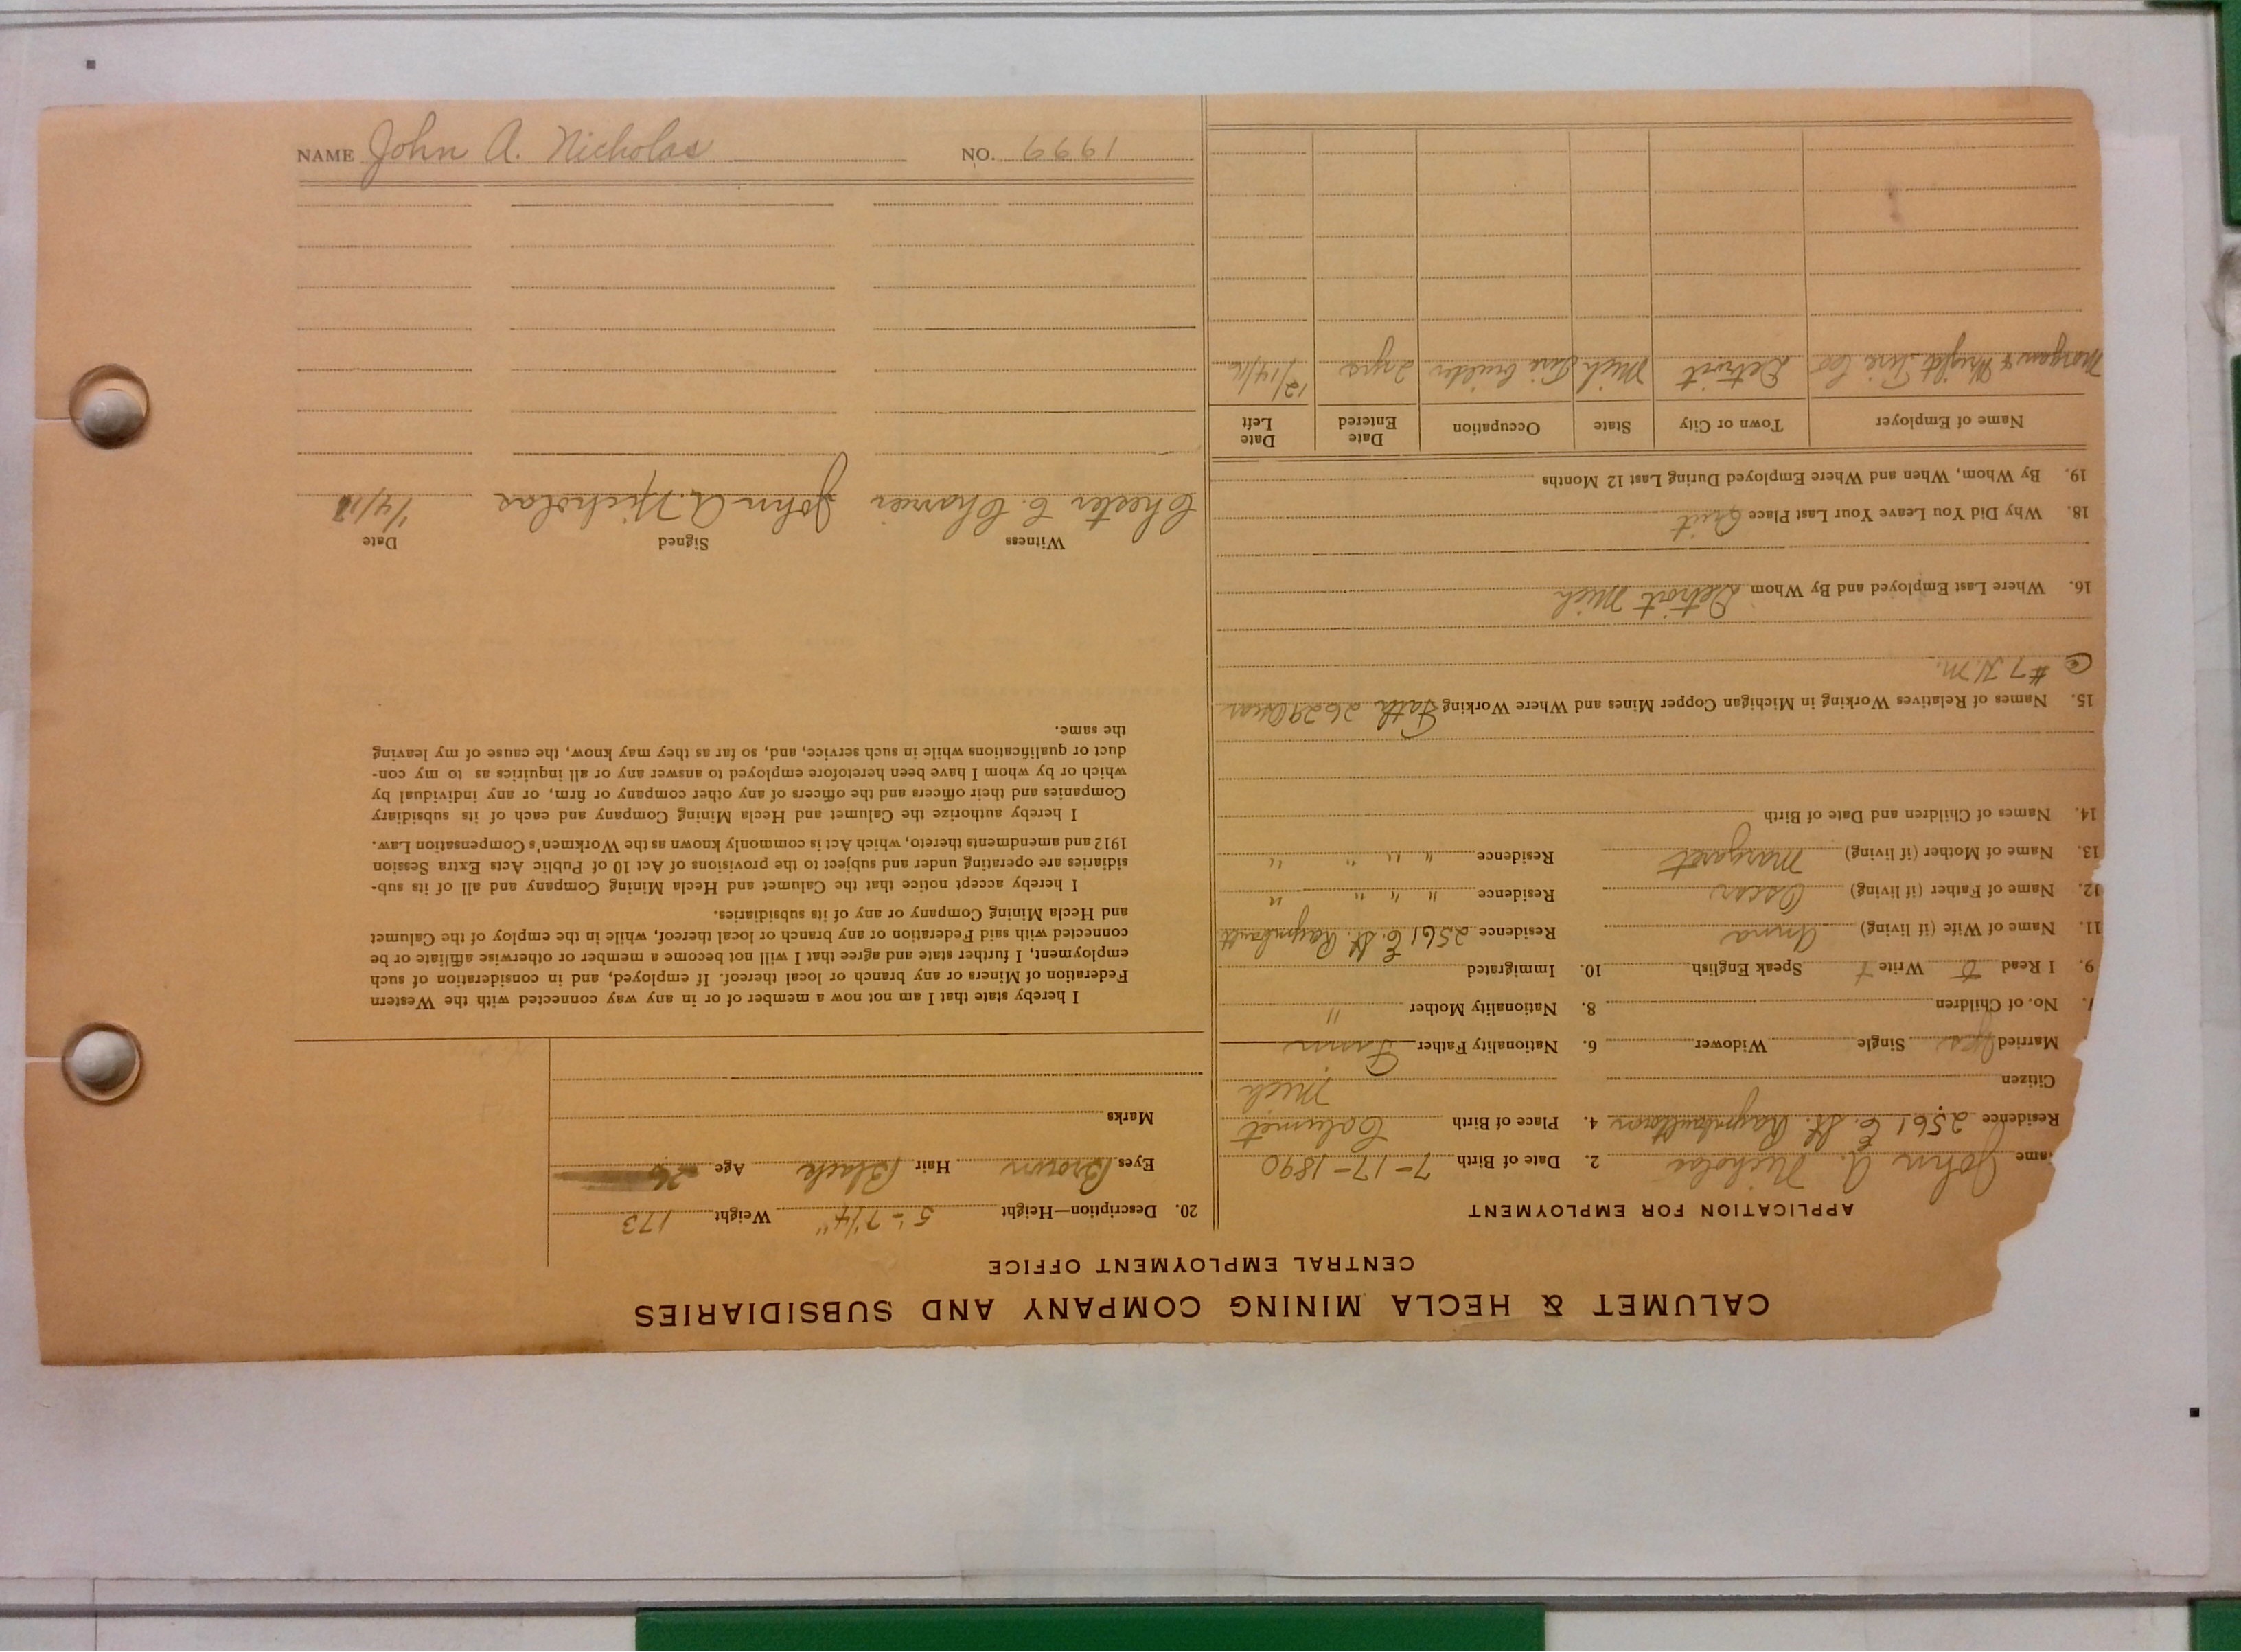 NAME John A. Nicholas NO. 6661
CALUMET & HECLA MINING COMPANY AND SUBSIDIARIES
CENTRAL EMPLOYMENT OFFICE
APPLICATION FOR EMPLOYMENT
ame John A. Nicholas 2. Date of Birth 7-17-1890
Residence 2561 E. St. Raymbaultown 4. Place of Birth Calumet
Citizen Mich
Married Yes Single Widower 6. Nationality Father Finn
No. of Children 8. Nationality Mother "
9. I Read Write Speak English 10. Immigrated
11. Name of Wife (if living) Anna Residence 2561 E. St. Raymbault
12. Name of Father (if living) Oscar Residence " " " "
13. Name of Mother (if living) Margaret Residence " " " "
14. Names of Children and Date of Birth
15. Names of Relatives Working in Michigan Copper Mines and Where Working Fath 2629 Oscar
#7 H.M.
16. Where Last Employed and By Whom Detroit Mich
18. Why Did You Leave Your Last Place Quit
19. By Whom, When and Where Employed During Last 12 Months
Name of Employer Town or City State Occupation Date Entered Date Left
Morgan & Wright Tire Co Detroit Mich Tire builder 2 yrs 12/14/16
20. Description—Height 5'-7 1/4" Weight 173
Eyes Brown Hair Black Age 26
Marks
I hereby state that I am not now a member of or in any way connected with the Western
Federation of Miners or any branch or local thereof. If employed, and in consideration of such
employment, I further state and agree that I will not become a member or otherwise affiliate or be
connected with said Federation or any branch or local thereof, while in the employ of the Calumet
and Hecla Mining Company or any of its subsidiaries.
I hereby accept notice that the Calumet and Hecla Mining Company and all of its sub-
sidiaries are operating under and subject to the provisions of Act 10 of Public Acts Extra Session
1912 and amendments thereto, which Act is commonly known as the Workmen's Compensation Law.
I hereby authorize the Calumet and Hecla Mining Company and each of its subsidiary
Companies and their officers and the officers of any other company or firm, or any individual by
which or by whom I have been heretofore employed to answer any or all inquiries as to my con-
duct or qualifications while in such service, and, so far as they may know, the cause of my leaving
the same.
Witness Signed Date
Chester E. John A. Nicholas 1/4/17